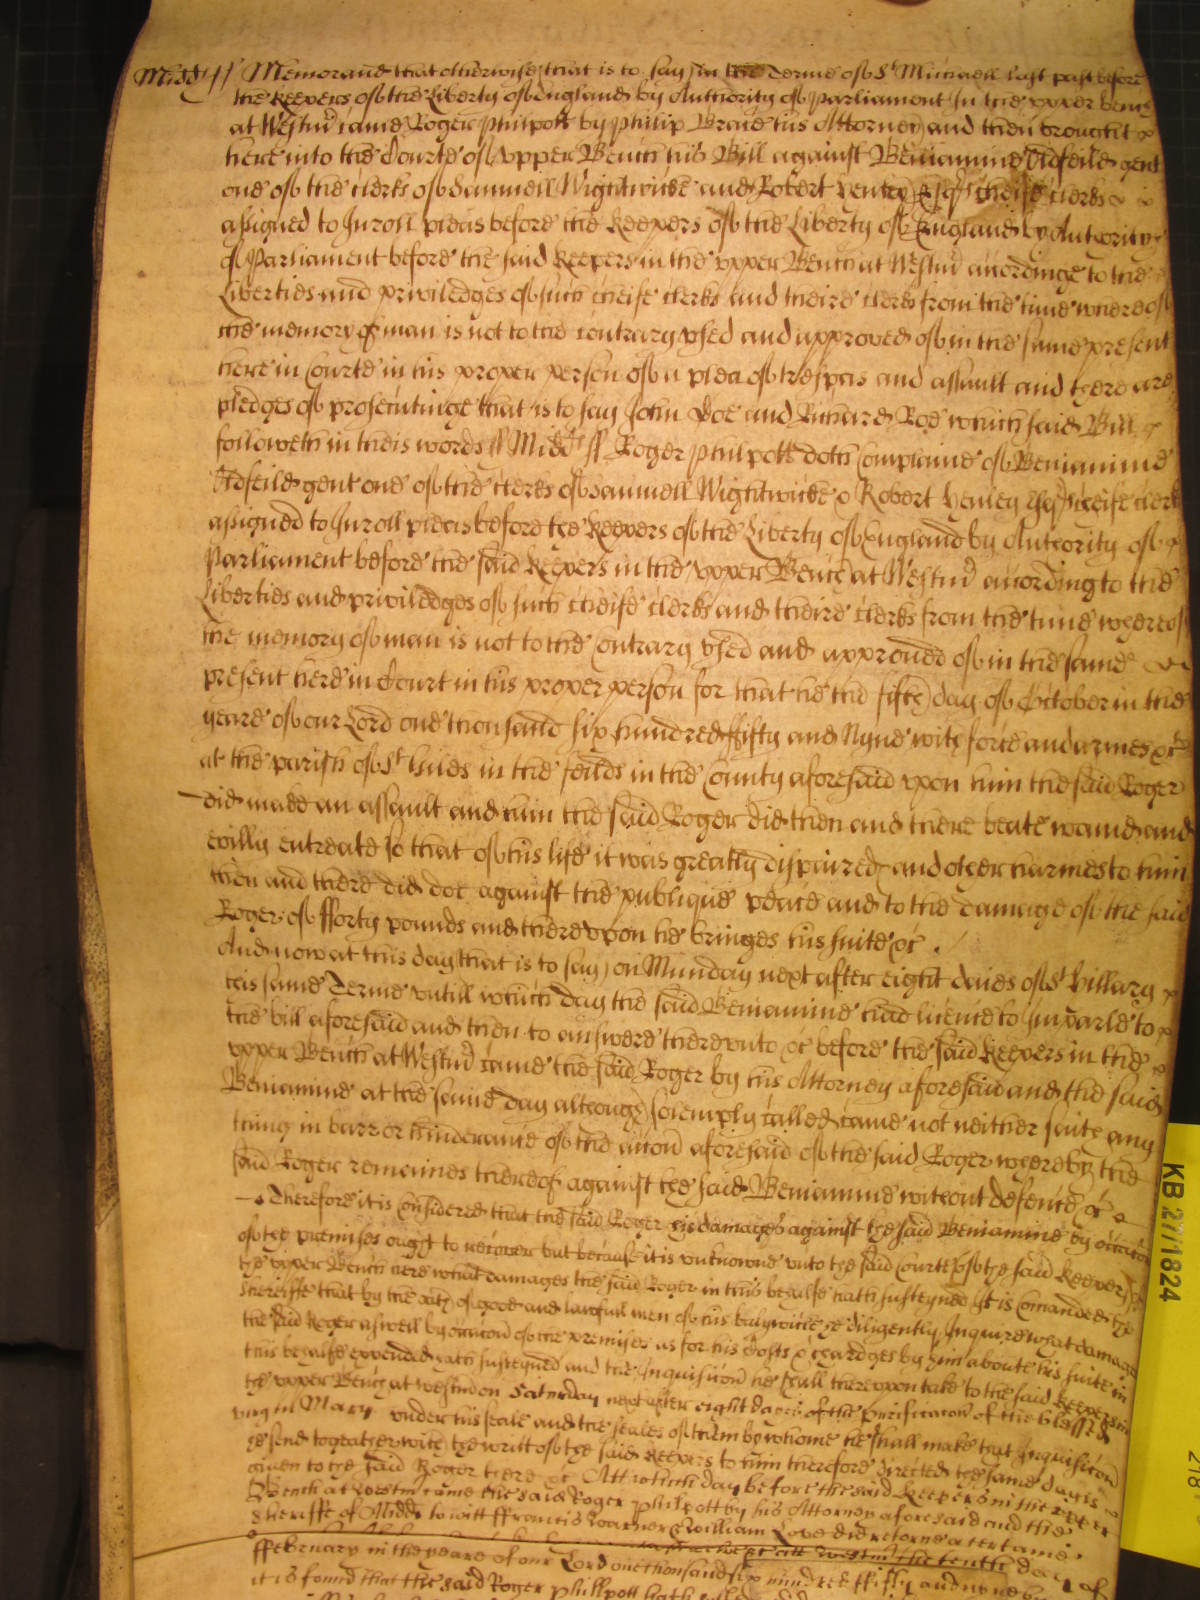 Midds ss Memorand that otherwise that is to say in the Terme of St Michaell last past before
the keepers of the Liberty of England by Authority of Parliament In the upper bench
at Westmr came Roger Philpott by Philip Brade his Attorney and then brought
here into the Courte of upper Bench his Bill against Beniamine Oldfeild gent
one of the clerks of Samuell Wightwicke and Robert Henley Esqrs cheife clerks
assigned to Inroll pleas before the keepers of the Liberty of England by Authority
of Parliament before the said keepers in the upper Bench at Westmr accordinge to the
Liberties and priviledges of such cheife clerks and theire clerks from the time whereof
the memory of man is not to the contrary used and approved of in the same present
here in Courte in his proper person of a plea of trespas and assault and there are
pledges of prosecutinge that is to say John Doe and Richard Roe which said Bill
followeth in theis words ss Midds ss Roger Philpott doth complaine of Beniamine
Oldfeild gent one of the clerks of Samuell Wightwicke & Robert Henley Esqrs cheife clerks
assigned to Inroll pleas before the keepers of the Liberty of England by Authority of
Parliament before the said keepers in the upper Bench at Westmr according to the
Liberties and priviledges of such cheife clerks and theire clerks from the time whereof
the memory of man is not to the contrary used and approued of in the same
present here in Court in his proper person for that he the fifth day of October in the
yeare of our Lord one thousand six hundred fifty and Nyne with force and armes &c
at the parish of St Giles in the feilds in the County aforesaid upon him the said Roger
did make an assault and him the said Roger did then and there beate wound and
evilly entreate so that of his life it was greatly dispaired and other harmes to him
then and there did doe against the publique peace and to the damage of the said
Roger of fforty pounds and thereupon he bringes his suite &c
And now at this day that is to say on Munday next after eight daies of St hillary
this same Terme untill which day the said Beniamine had licence to Imparle to
the bill aforesaid and then to answere thereunto &c before the said keepers in the
upper Bench at Westmr came the said Roger by his Attorney aforesaid and the said
Beniamine at the same day although solemply called came not neither saith any
thing in barr or hinderance of the accon aforesaid of the said Roger whereby the
said Roger remaines thereof against the said Beniamine without defence &c
Therefore it is considered that the said Roger his damages against the said Beniamine by occasion
of the premises ought to recover but because it is unknowne unto the said Courte of the said keepers in
the upper Bench here what damages the said Roger in this behalfe hath susteyned It is comanded the
Sheriffe that by the oath of good and lawfull men of his baliwicke he diligently Inquire what damages
the said Roger aswell by occacon of the premises as for his costs & chardges by him aboute his suite in
this behalfe expended hath susteyned and the Inquisicon he shall thereupon take to the said keepers in
the upper Bench at Westm on Saturday next after eight daies of the purificacon of the blessed
virgin Mary under his seale and the seales of them by whome he shall make that Inquisicon
he send togeather with the writt of the said keepers to him therefore directed the same day is
given to the said Roger there &c Att which day before the said keepers in the upper
Bench at Westm came the said Roger Philpott by his Attorney aforesaid and the
Sheriffe of Midds to witt ffrancis Warner & William Love did retorne a certaine
att Westm the tenth day of
ffebruary in the yeare of our Lord one thousand six hundred ffifty and nyne by
it is found that the said Roger Phillpott hath
KB 27/1824